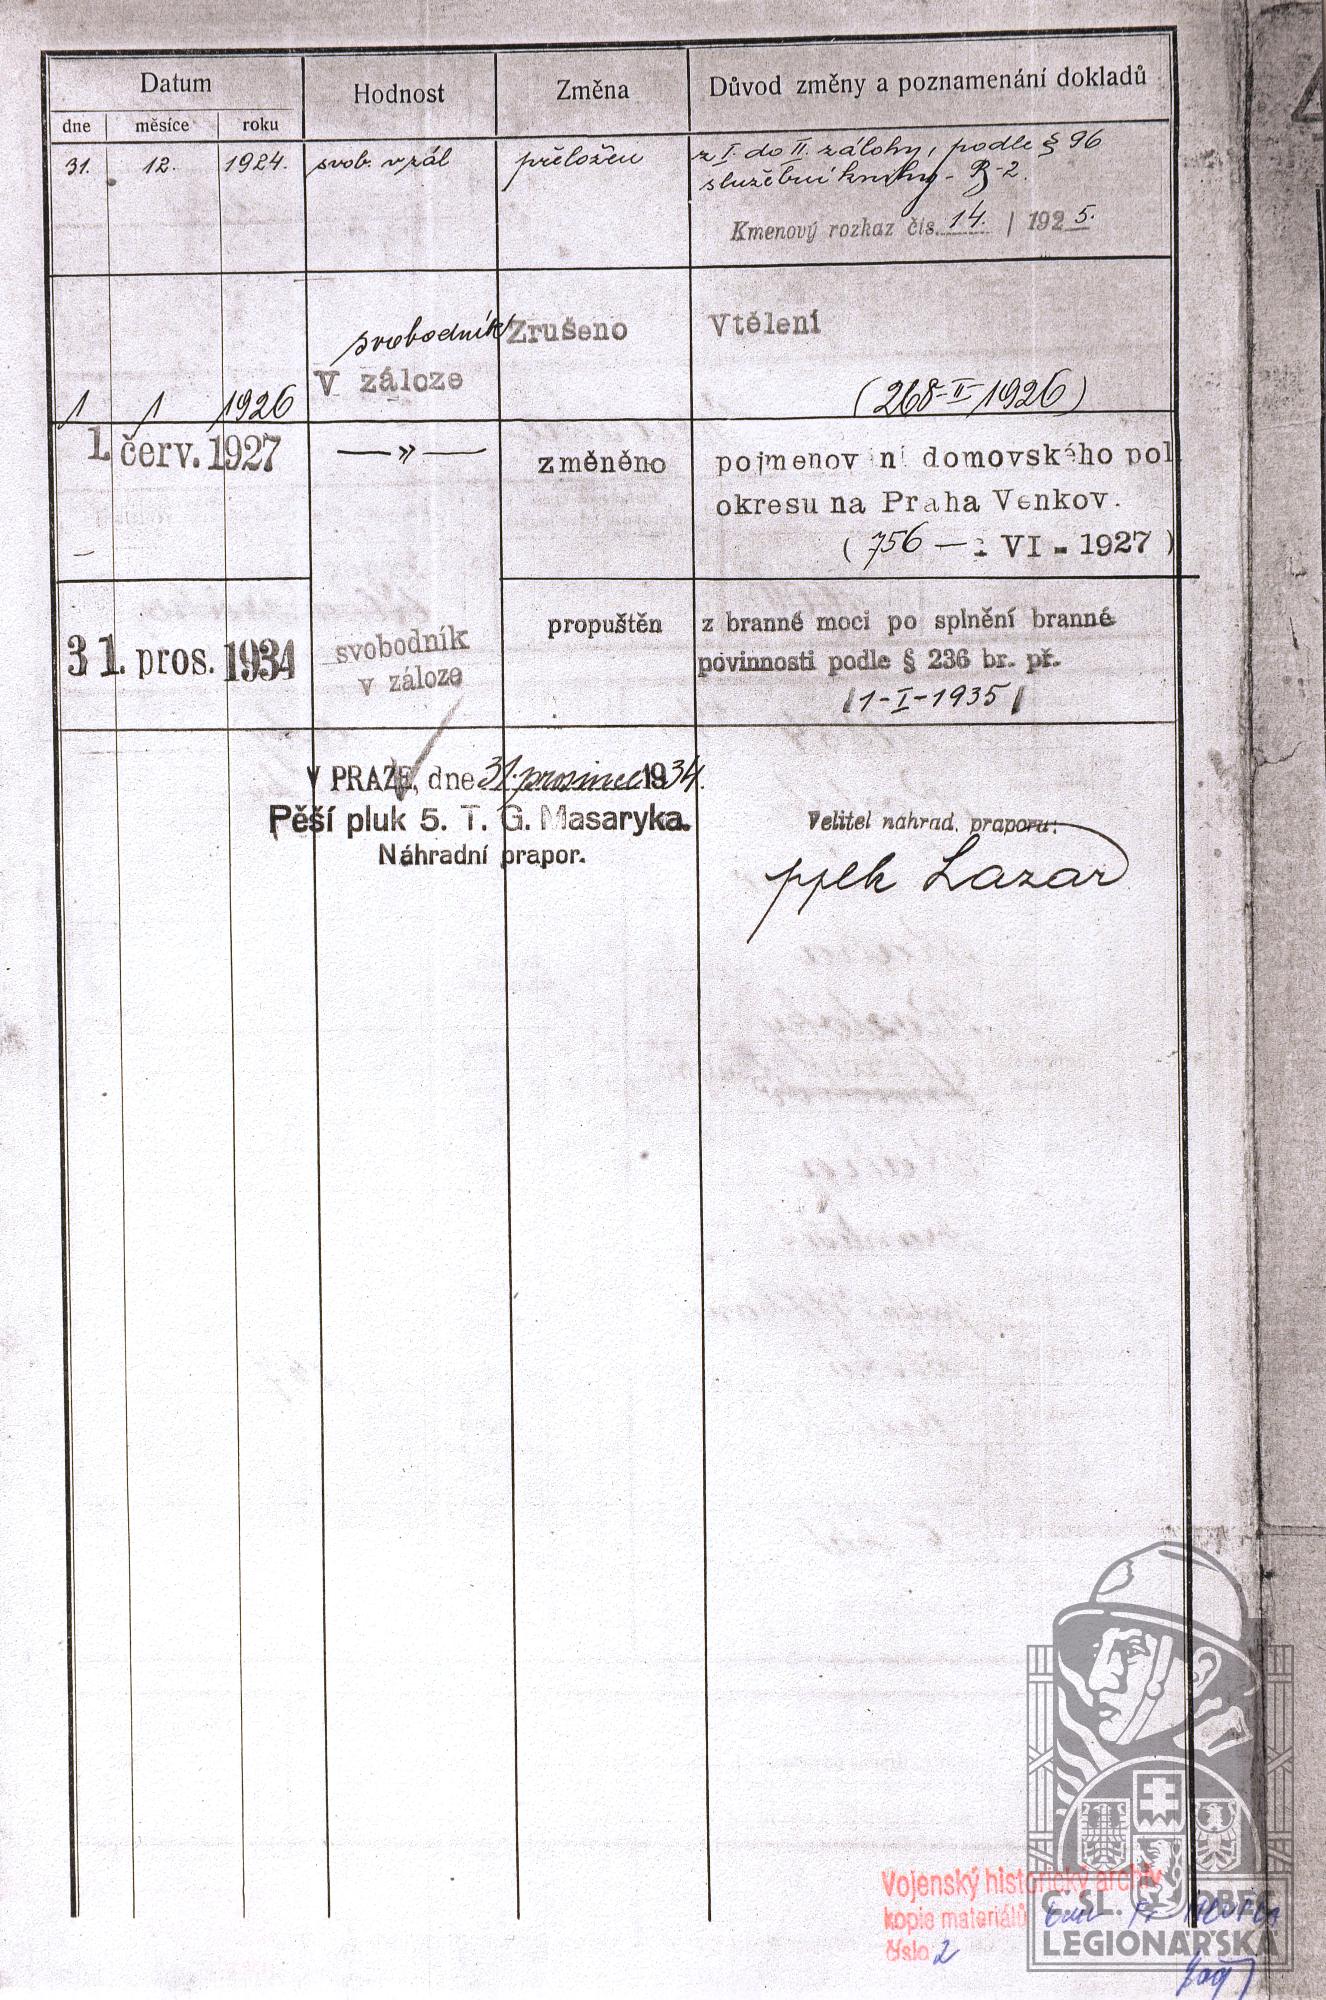 Datum
Hodnost
Změna
Důvod změny a poznamenání dokladů
dne
měsíce
roku
31.
12.
1924.
svob. v zál
přeložen
z I. do II. zálohy, podle § 96
služební knihy - B-2.
Kmenový rozkaz čís. 14. / 1925.
1
1
1926
svobodník
V záloze
Zrušeno
Vtělení
(268-II-1926)
1. červ. 1927
— „ —
změněno
pojmenování domovského pol
okresu na Praha Venkov.
(756 — VI - 1927)
31. pros. 1934
svobodník
v záloze
propuštěn
z branné moci po splnění branné
povinnosti podle § 236 br. př.
/1-I-1935/
V PRAZE, dne 31. prosince 1934.
Pěší pluk 5. T. G. Masaryka.
Náhradní prapor.
Velitel náhrad. praporu:
pplk Lazar
Vojenský historický archiv
kopie materiálů
číslo 2
ČSL. OBEC
LEGIONÁŘSKÁ